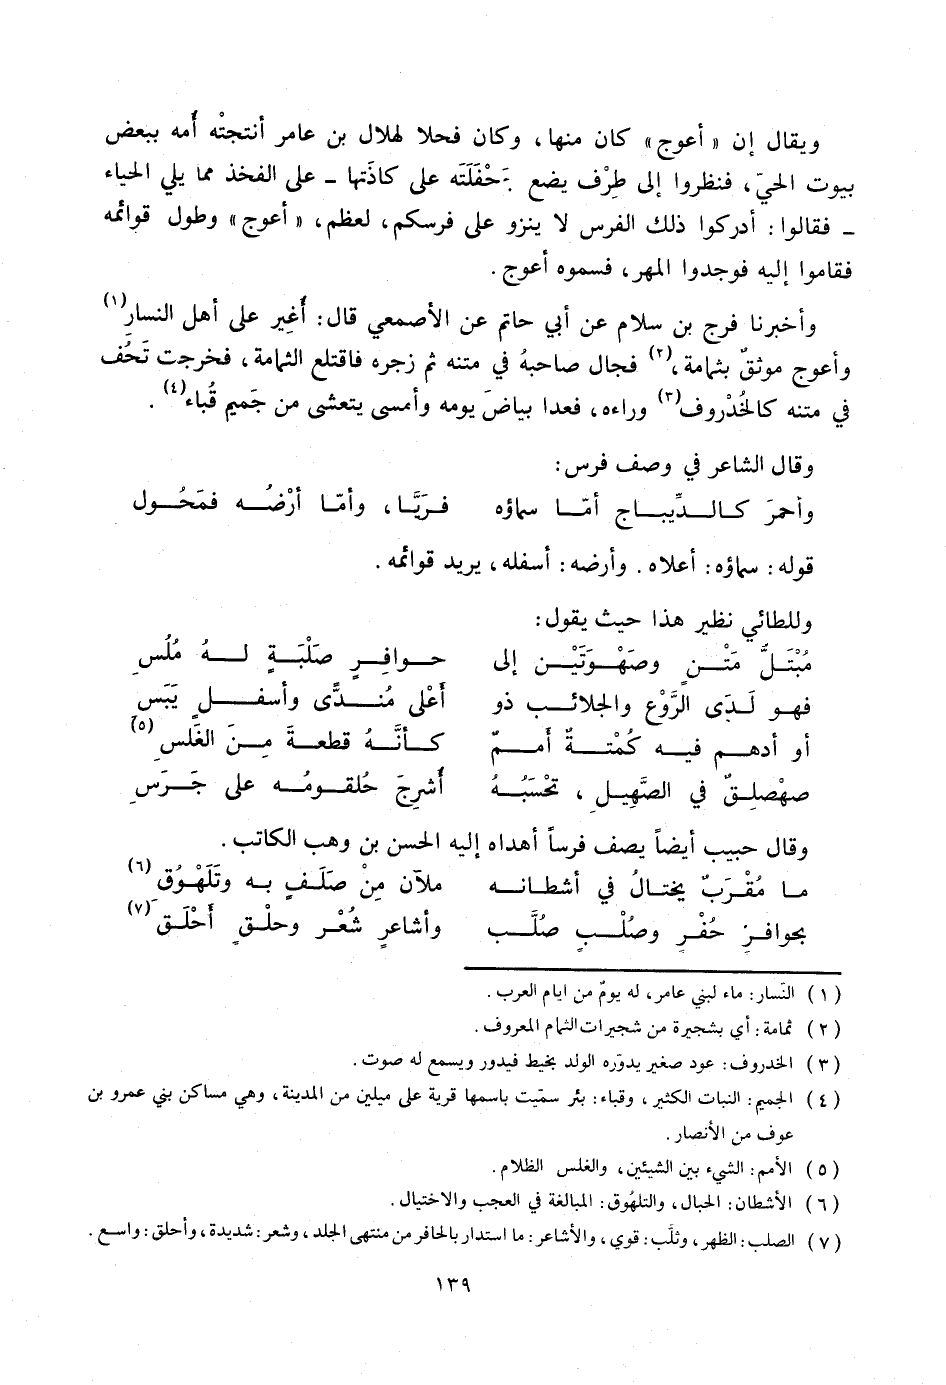 ويقال إن « أعوج » كان منها، وكان فحلا لهلال بن عامر أنتجتْه أُمه ببعض
بيوت الحيّ، فنظروا إلى طِرْف يضع جَحْفَلَتَه على كاذَتها ــ على الفخذ مما يلي الحياء
ــ فقالوا: أدركوا ذلك الفرس لا ينزو على فرسكم، لعظم، « أعوج » وطول قوائمه
فقاموا إليه فوجدوا المهر، فسموه أعوج.
وأخبرنا فرج بن سلام عن أبي حاتم عن الأصمعي قال: أُغِير على أهل النسارِ(١)
وأعوج موثقٌ بثمامة،(٢) فجال صاحبهُ في متنه ثم زجره فاقتلع الثمامة، فخرجت تَحُف
في متنه كالخُذْروف(٣) وراءه، فعدا بياضَ يومه وأمسى يتعشى من جَميم قُباء(٤).
وقال الشاعر في وصف فرس:
وأحمرَ كالدِّيباج أمّا سماؤه فرَيَّا، وأمّا أرْضُه فمَحُول
قوله: سماؤه: أعلاه. وأرضه: أسفله، يريد قوائمه.
وللطائي نظير هذا حيث يقول:
مُبْتَلُّ مَتْنٍ وصَهْوَتَيْن إلى حوافِرٍ صَلْبَةٍ لهُ مُلُسِ
فهو لَدَى الرَّوْع والجلائب ذو أَعْلى مُندَّى وأسفلٍ يَبَس
أو أدهم فيه كُمْتةٌ أَممٌ كأنَّهُ قطعةَ مِنَ الغَلسِ(٥)
صهْصلِقٌ في الصَّهِيل، تحْسَبُهُ أُشرِجَ حُلقومُه على جَرَسِ
وقال حبيب أيضاً يصف فرساً أهداه إليه الحسن بن وهب الكاتب.
ما مُقْرَبٌ يختالُ في أشطانه ملآن مِنْ صَلَفٍ به وتَلَهْوُق(٦)
بحوافرٍ حُفْر وصُلْبٍ صُلَّبٍ وأشاعرٍ شُعْرٍ وحلْقٍ أَحْلَقِ(٧)
(١) النَسار: ماء لبني عامر، له يومٌ من ايام العرب.
(٢) ثمامة: أي بشجيرة من شجيرات الثمام المعروف.
(٣) الخدروف: عود صغير يدوّره الولد بخيط فيدور ويسمع له صوت.
(٤) الجميم: النبات الكثير، وقباء: بئر سمّيت باسمها قرية على ميلين من المدينة، وهي مساكن بني عمرو بن
عوف من الأنصار.
(٥) الأمم: الشيء بين الشيئين، والغلس الظلام.
(٦) الأشطان: الحبال، والتلهُوق: المبالغة في العجب والاختيال.
(٧) الصلب: الظهر، وثلَّب: قوي، والأشاعر: ما استدار بالحافر من منتهى الجلد، وشعر: شديدة، وأحلق: واسع.
١٣٩